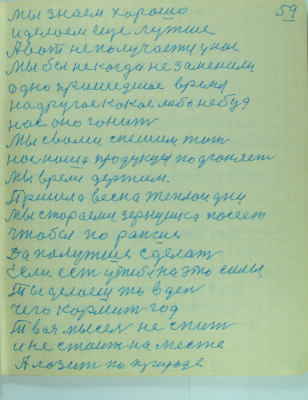 59
Мы знаем хорошо
и делаем еще лутше
А вот не получаетц у нас
Мы бы некогда не заменили
одно пришедшее время
на другое какое либо небуд
нас оно гонит
Мы сваими спешим тот
нас наша продукцы подгоняет
Мы время держим.
Пришла весна теплои дни
Мы стараемц зернушка посеет
чтобы по раньше
Да полутше сделат
Если ест у тебя на это силы
Ты делаеш то в ден
чего кормит год
Твоя мысел не спит
и не стоит на месте
А лозит по природе